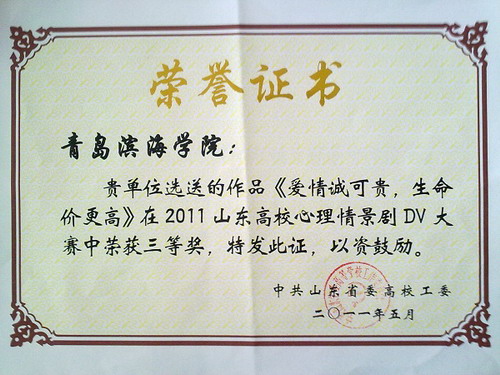 荣誉证书
青岛滨海学院：
贵单位选送的作品《爱情诚可贵，生命
价更高》在2011山东高校心理情景剧DV大
赛中荣获三等奖，特发此证，以资鼓励。
中共山东省委高校工委
二〇一一年五月